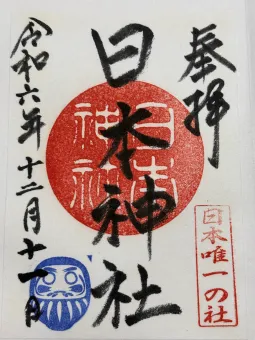 奉拝
日本神社
日本
神社
日本唯一の社
令和六年十二月十一日